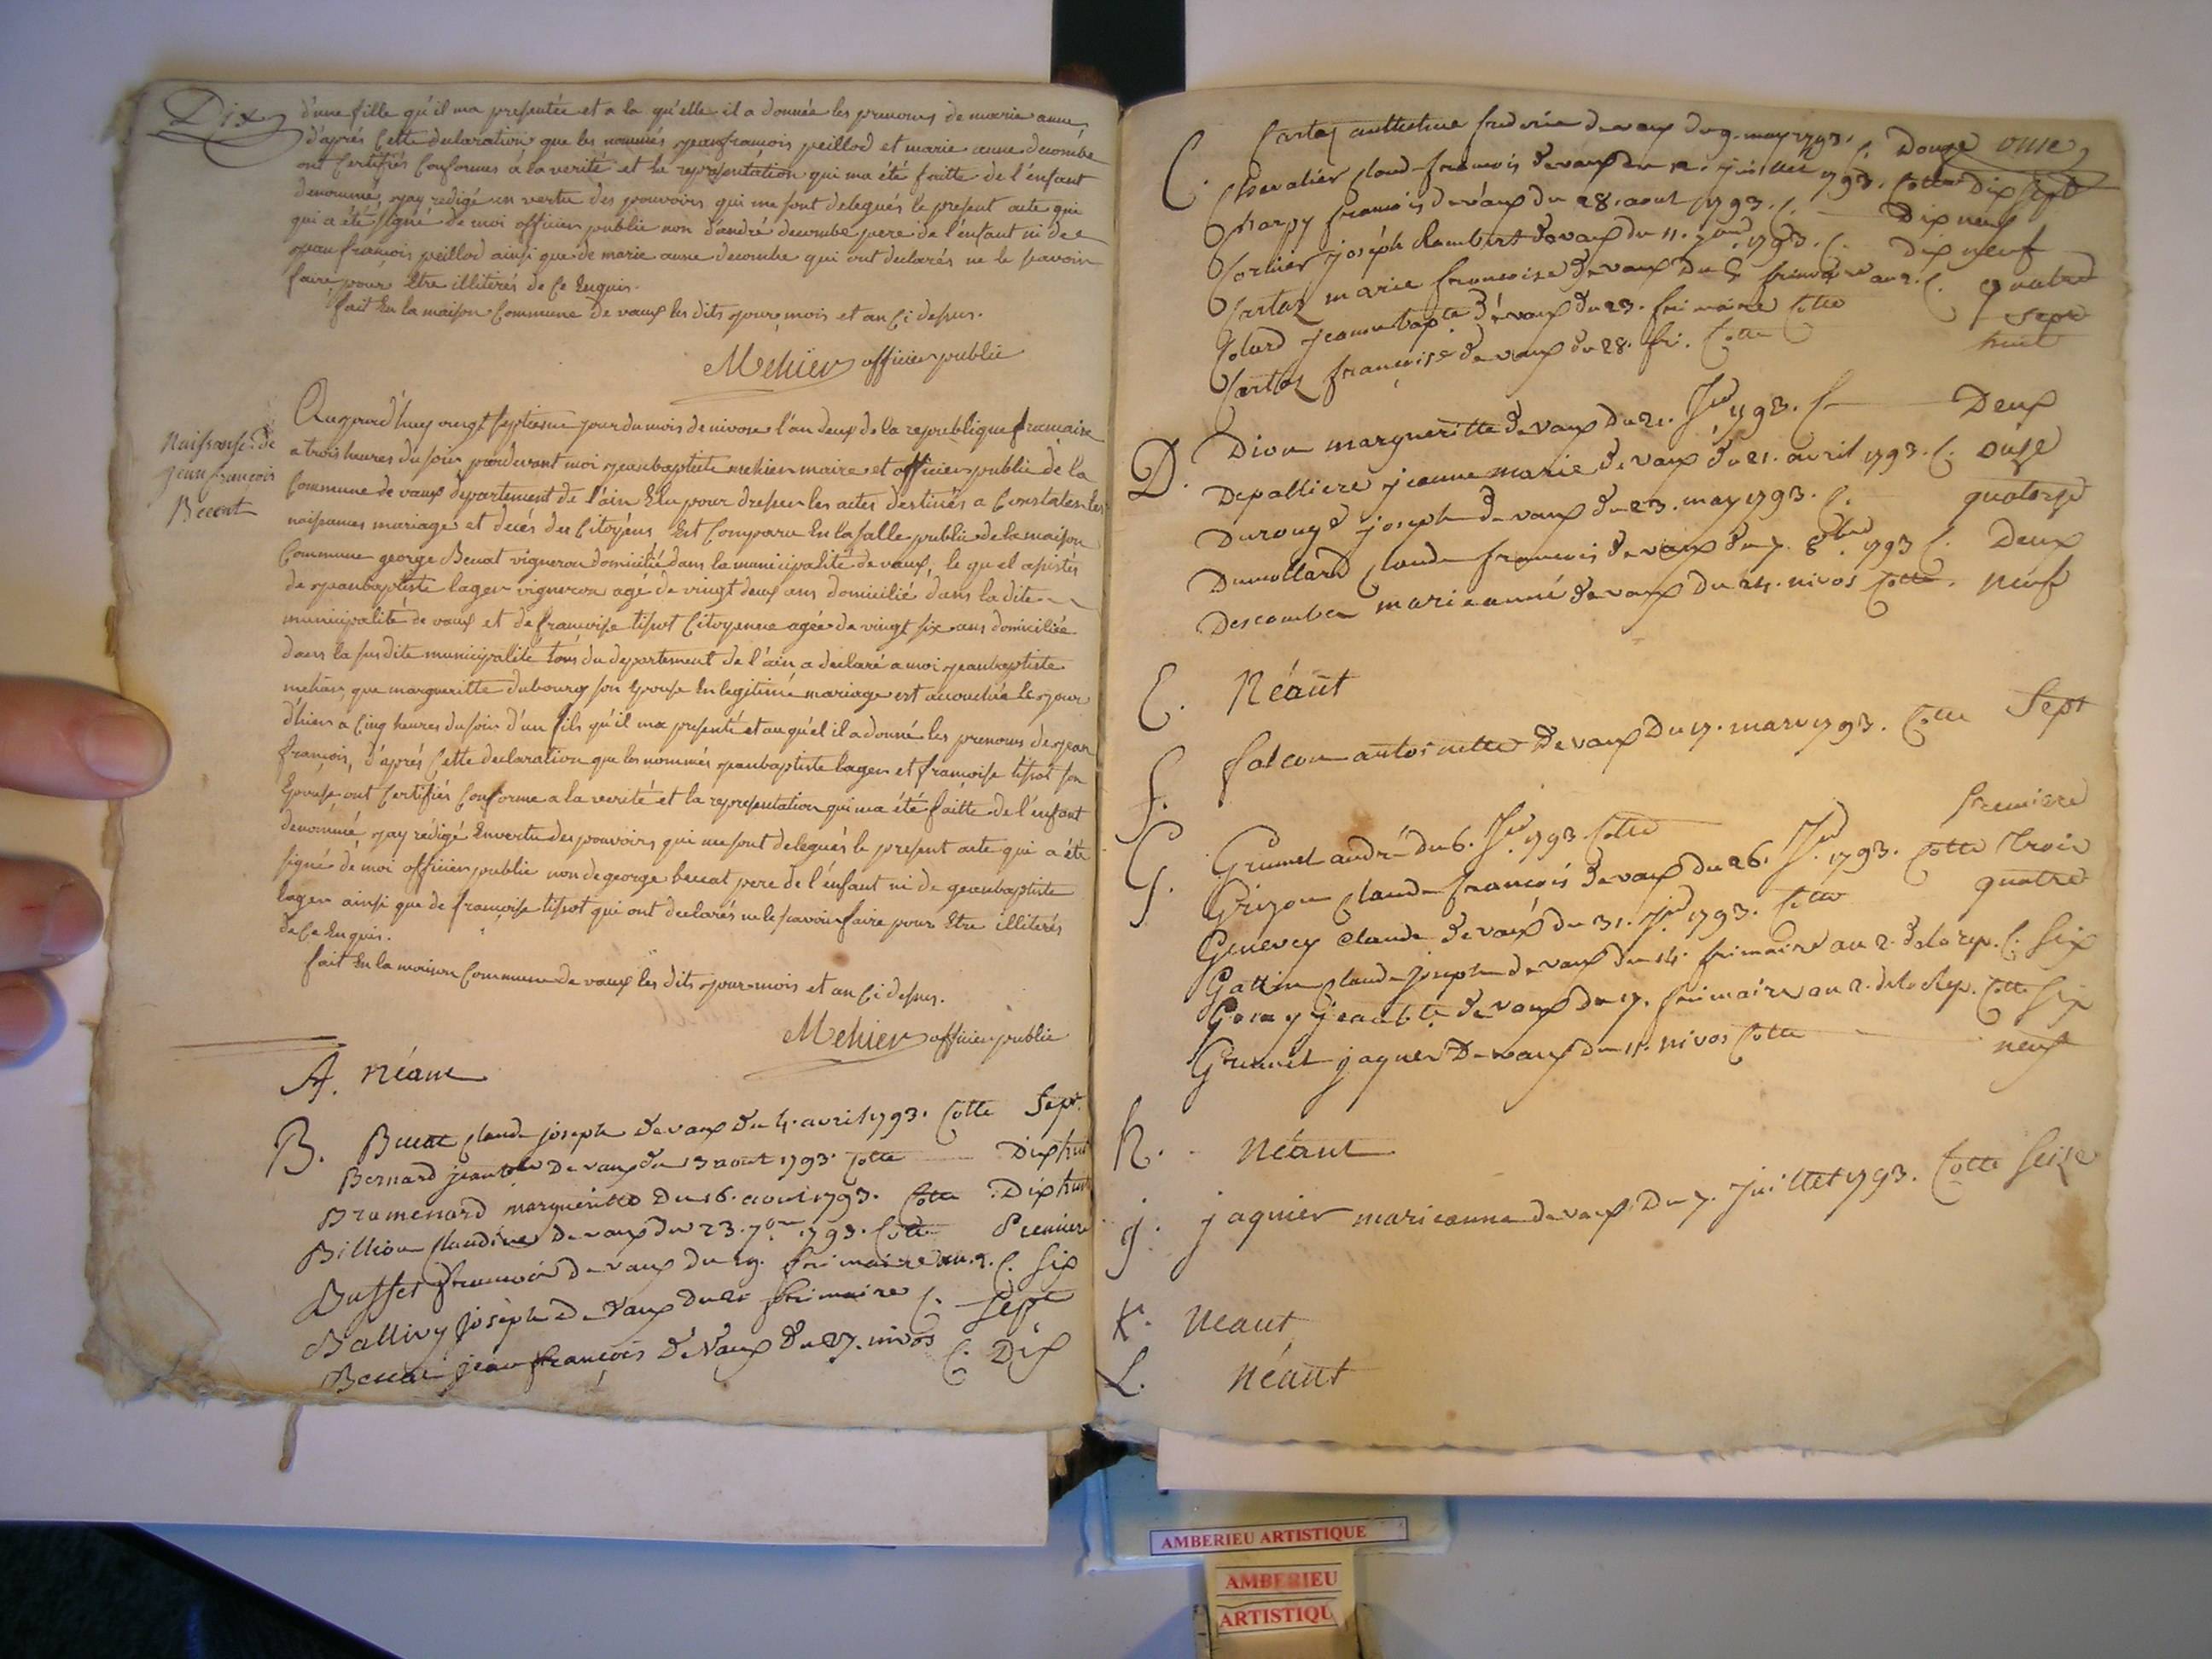 Dix
d'une fille qu'il ma presentée et a la qu'elle il a donnée les prenoms de marie anne,
d'aprés Cette declaration que les nommés jean francois peillod et marie anne decombe
ont Certifiés Conformes a la verité et la representation qui ma été faitte de l'enfant
denommé, jay redigé en vertu des pouvoirs qui me sont delegués le present acte qui
qui a été signé de moi officier public non d'andré decombe pere de l'enfant ni de
jean francois peillod ainsi que de marie anne decombe qui ont declarés ne le savoir
faire pour Etre illiterés de Ce Enquis.
fait En la maison Commune de vaux les dits jour, mois et an Ci dessus.
Mehier officier public
Naissance de
jean francois
Beccat
Aujourd'huy vingt septieme jour du mois de nivose l'an deux de la republique francaise
a trois heures du soir, pardevant moi jean baptiste mehier maire et officier public de la
Commune de vaux departement de l'ain Elu pour dresser les actes destinés a Constater les
naissances mariage et decés des Citoyens Est Comparu En la salle public de la maison
Commune george Benat vigneron domicilié dans la municipalité de vaux, le quel assistés
de jean baptiste lager vigneron agé de vingt deux ans domicilié dans la dite
municipalité de vaux et de francoise tissot Citoyenne agée de vingt six ans domiciliée
dans la susdite municipalité tous du departement de l'ain a declaré a moi jean baptiste
mehier que margueritte dubourg son Epouse En legitime mariage est accouchée le jour
d'hier a Cinq heures du soir d'un fils qu'il ma presenté et au quel il a donné les prenoms de jean
francois, d'aprés Cette declaration que les nommés jean baptiste lager et francoise tissot son
Epouse ont Certifiés Conforme a la verité et la representation qui ma été faitte de l'enfant
denommé jay redigé En vertu des pouvoirs qui me sont delegués le present acte qui a été
signé de moi officier public non de george beccat pere de l'enfant ni de jean baptiste
lager ainsi que de francoise tissot qui ont declarés ne le savoir faire pour Etre illiterés
de Ce Enquis.
fait En la maison Commune de vaux les dits jour mois et an Ci dessus.
Mehier officier public
A. néant
B. Beccat Claude joseph de vaux du 4. avril 1793. Cotte Sept
Bernard jean bte de vaux du 3 aout 1793. Cotte Dix huit
Bramenard margueritte Du 16. aout 1793. Cotte Dix huit
Billion Claudine de vaux du 23. 7bre 1793. Cotte Premiere
Buffet francois de vaux du 19. frimaire an 2. C. Six
Ballivy joseph de vaux du 21 frimaire C. Sept
Beccat jean francois de Vaux du 27. nivos C. Dix
onse
C. Cartaz anthelme frederic de vaux du 9. may 1793. C. Douze
Chevalier Claude francois de vaux du 12. juillet 1793. Cotte Dix sept
Charpy francois de vaux du 28. aout 1793. C. Dix neuf
Cortier joseph Rambert de vaux du 11. 7bre 1793. C. dix neuf
Cartaz marie francoise de vaux du 5 frimaire an 2. C. quatre
Colard jeanne bapte de vaux du 23. frimaire Cotte Sept
Cartaz françoise de vaux du 28. fri. Cotte huit
D. Dion margueritte de vaux du 21. Jer 1793. C. Deux
Depalliere jeanne marie de vaux du 21. avril 1793. C. onse
Durouge joseph de vaux du 23. may 1793. C. quatorse
Dumollard Claude francois de vaux du 7. 8bre 1793 C. Deux
Descombes marie anne de vaux du 24. nivos Cotte. neuf
E. Néant
f. falcon antoinette de vaux Du 17. mars 1793. Cotte Sept
G. Grumet andré du 6. Jer. 1793. Cotte Premiere
Grizon Claude francois de vaux du 26. Jer. 1793. Cotte Trois
Genevey Claude de vaux du 31. Jer 1793. Cotte quatre
Gattin Claude joseph de vaux du 14. frimaire an 2. de la rep. C. Six
jean bte de vaux du 17. frimaire an 2. de la Rep. Cotte Six
Grumet jaques De vaux du 11. nivos Cotte neuf
h. Néant
j. jaquier marie anne de vaux Du 7. juillet 1793. Cotte Seize
K. Neant
L. Néant
AMBERIEU ARTISTIQUE
AMBERIEU
ARTISTIQU